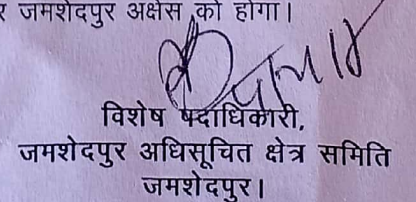 र जमशेदपुर अक्षेस को होगा।
विशेष पदाधिकारी,
जमशेदपुर अधिसूचित क्षेत्र समिति
जमशेदपुर।